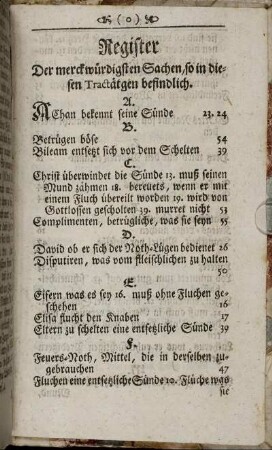 ( o )
Register
Der merckwürdigsten Sachen, so in die-
sen Tractätgen befindlich.
A.
AChan bekennt seine Sünde 23. 24
B.
Betrügen böse 54
Bileam entsetzt sich vor dem Schelten 39
C.
Christ überwindet die Sünde 13. muß seinen
Mund zähmen 18. bereuets, wenn er mit
einem Fluch übereilt worden 19. wird von
Gottlosen gescholten 39. murret nicht 53
Complimenten, betrügliche, was sie seyn 55
D.
David ob er sich der Noth-Lügen bedienet 26
Disputiren, was vom fleischlichen zu halten
50
E.
Eifern was es sey 16. muß ohne Fluchen ge-
schehen 16
Elisa flucht den Knaben 17
Eltern zu schelten eine entsetzliche Sünde 39
F.
Feuers-Noth, Mittel, die in derselben zu-
gebrauchen 47
Fluchen eine entsetzliche Sünde 10. Flüche was
sie